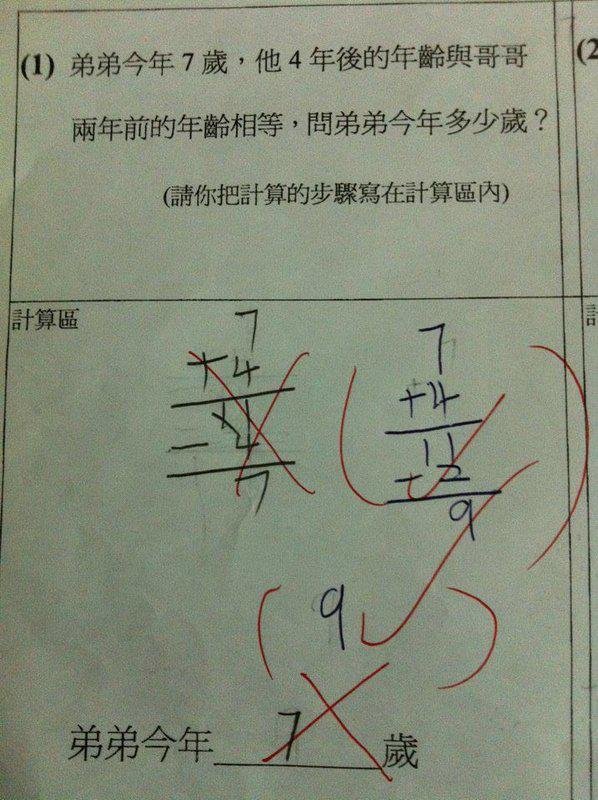 (1) 弟弟今年 7 歲，他 4 年後的年齡與哥哥
兩年前的年齡相等，問弟弟今年多少歲？
(請你把計算的步驟寫在計算區內)
計算區
7
+4
11
- 4
7
7
+4
11
2
9
9
弟弟今年 7 歲
(2